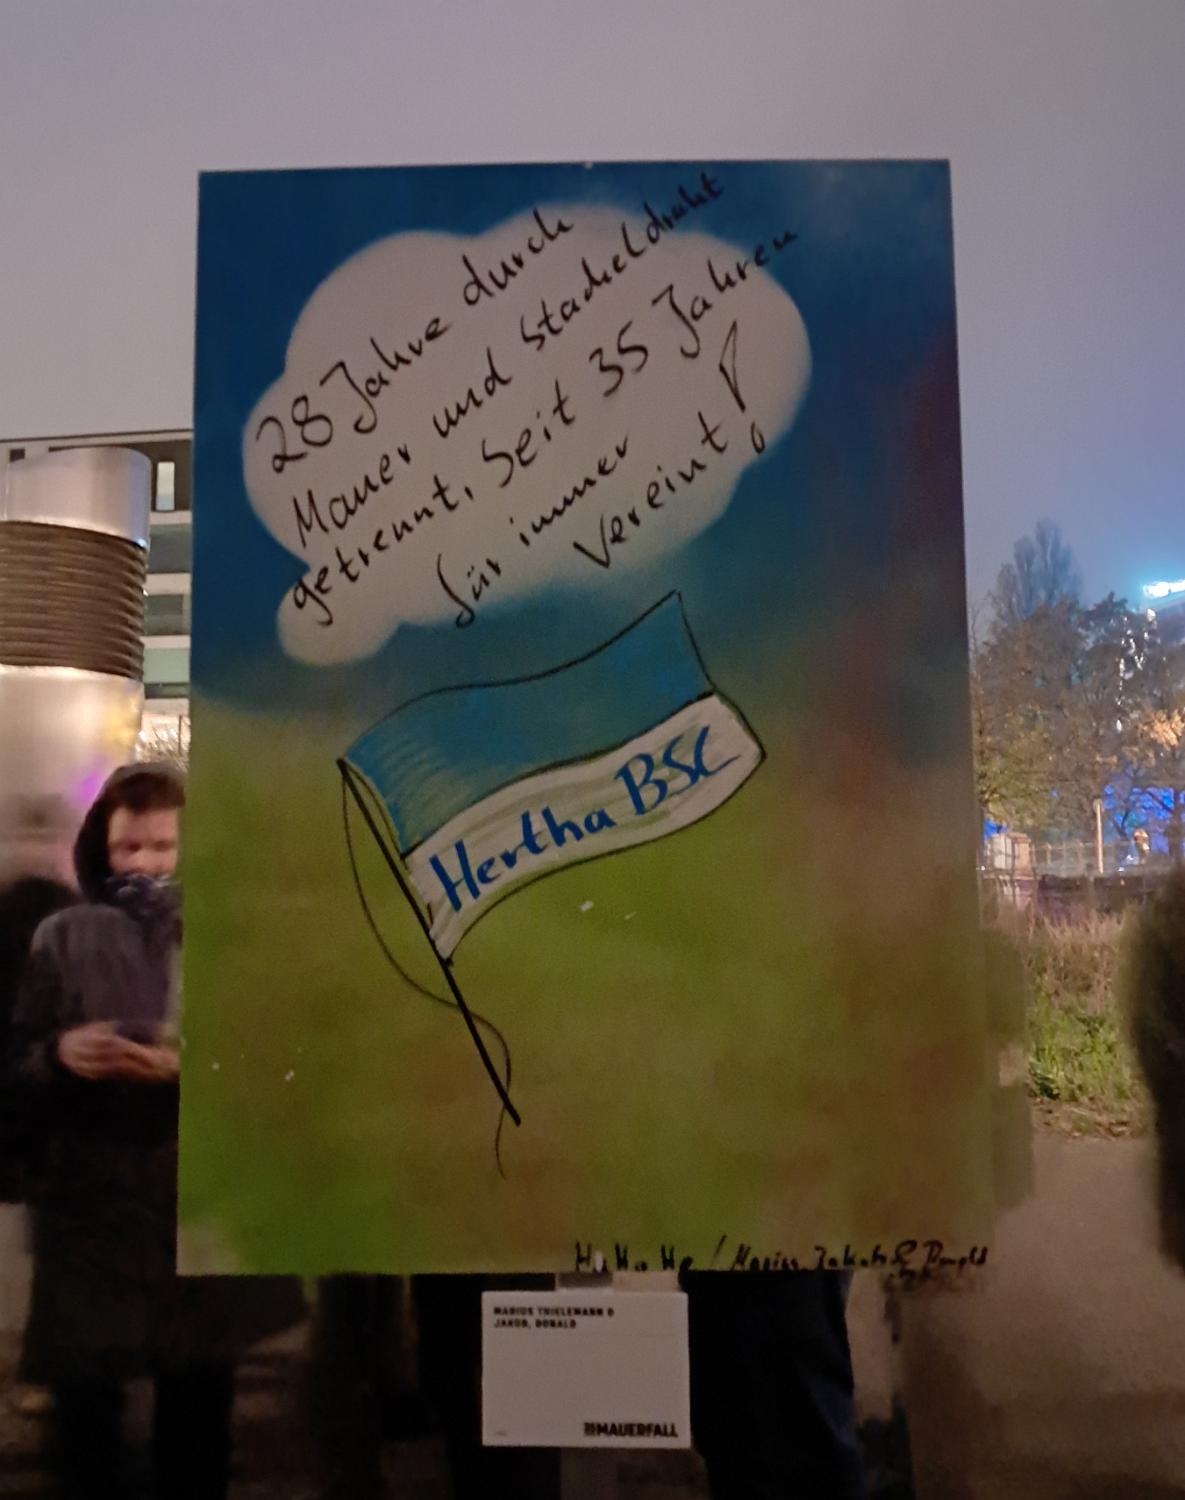 28 Jahre durch
Mauer und Stacheldraht
getrennt, Seit 35 Jahren
für immer
Vereint!
Hertha BSC
Ha Ho He / Marius, Jakob & Donald
MARIUS THIELEMANN &
JAKOB, DONALD
MAUERFALL